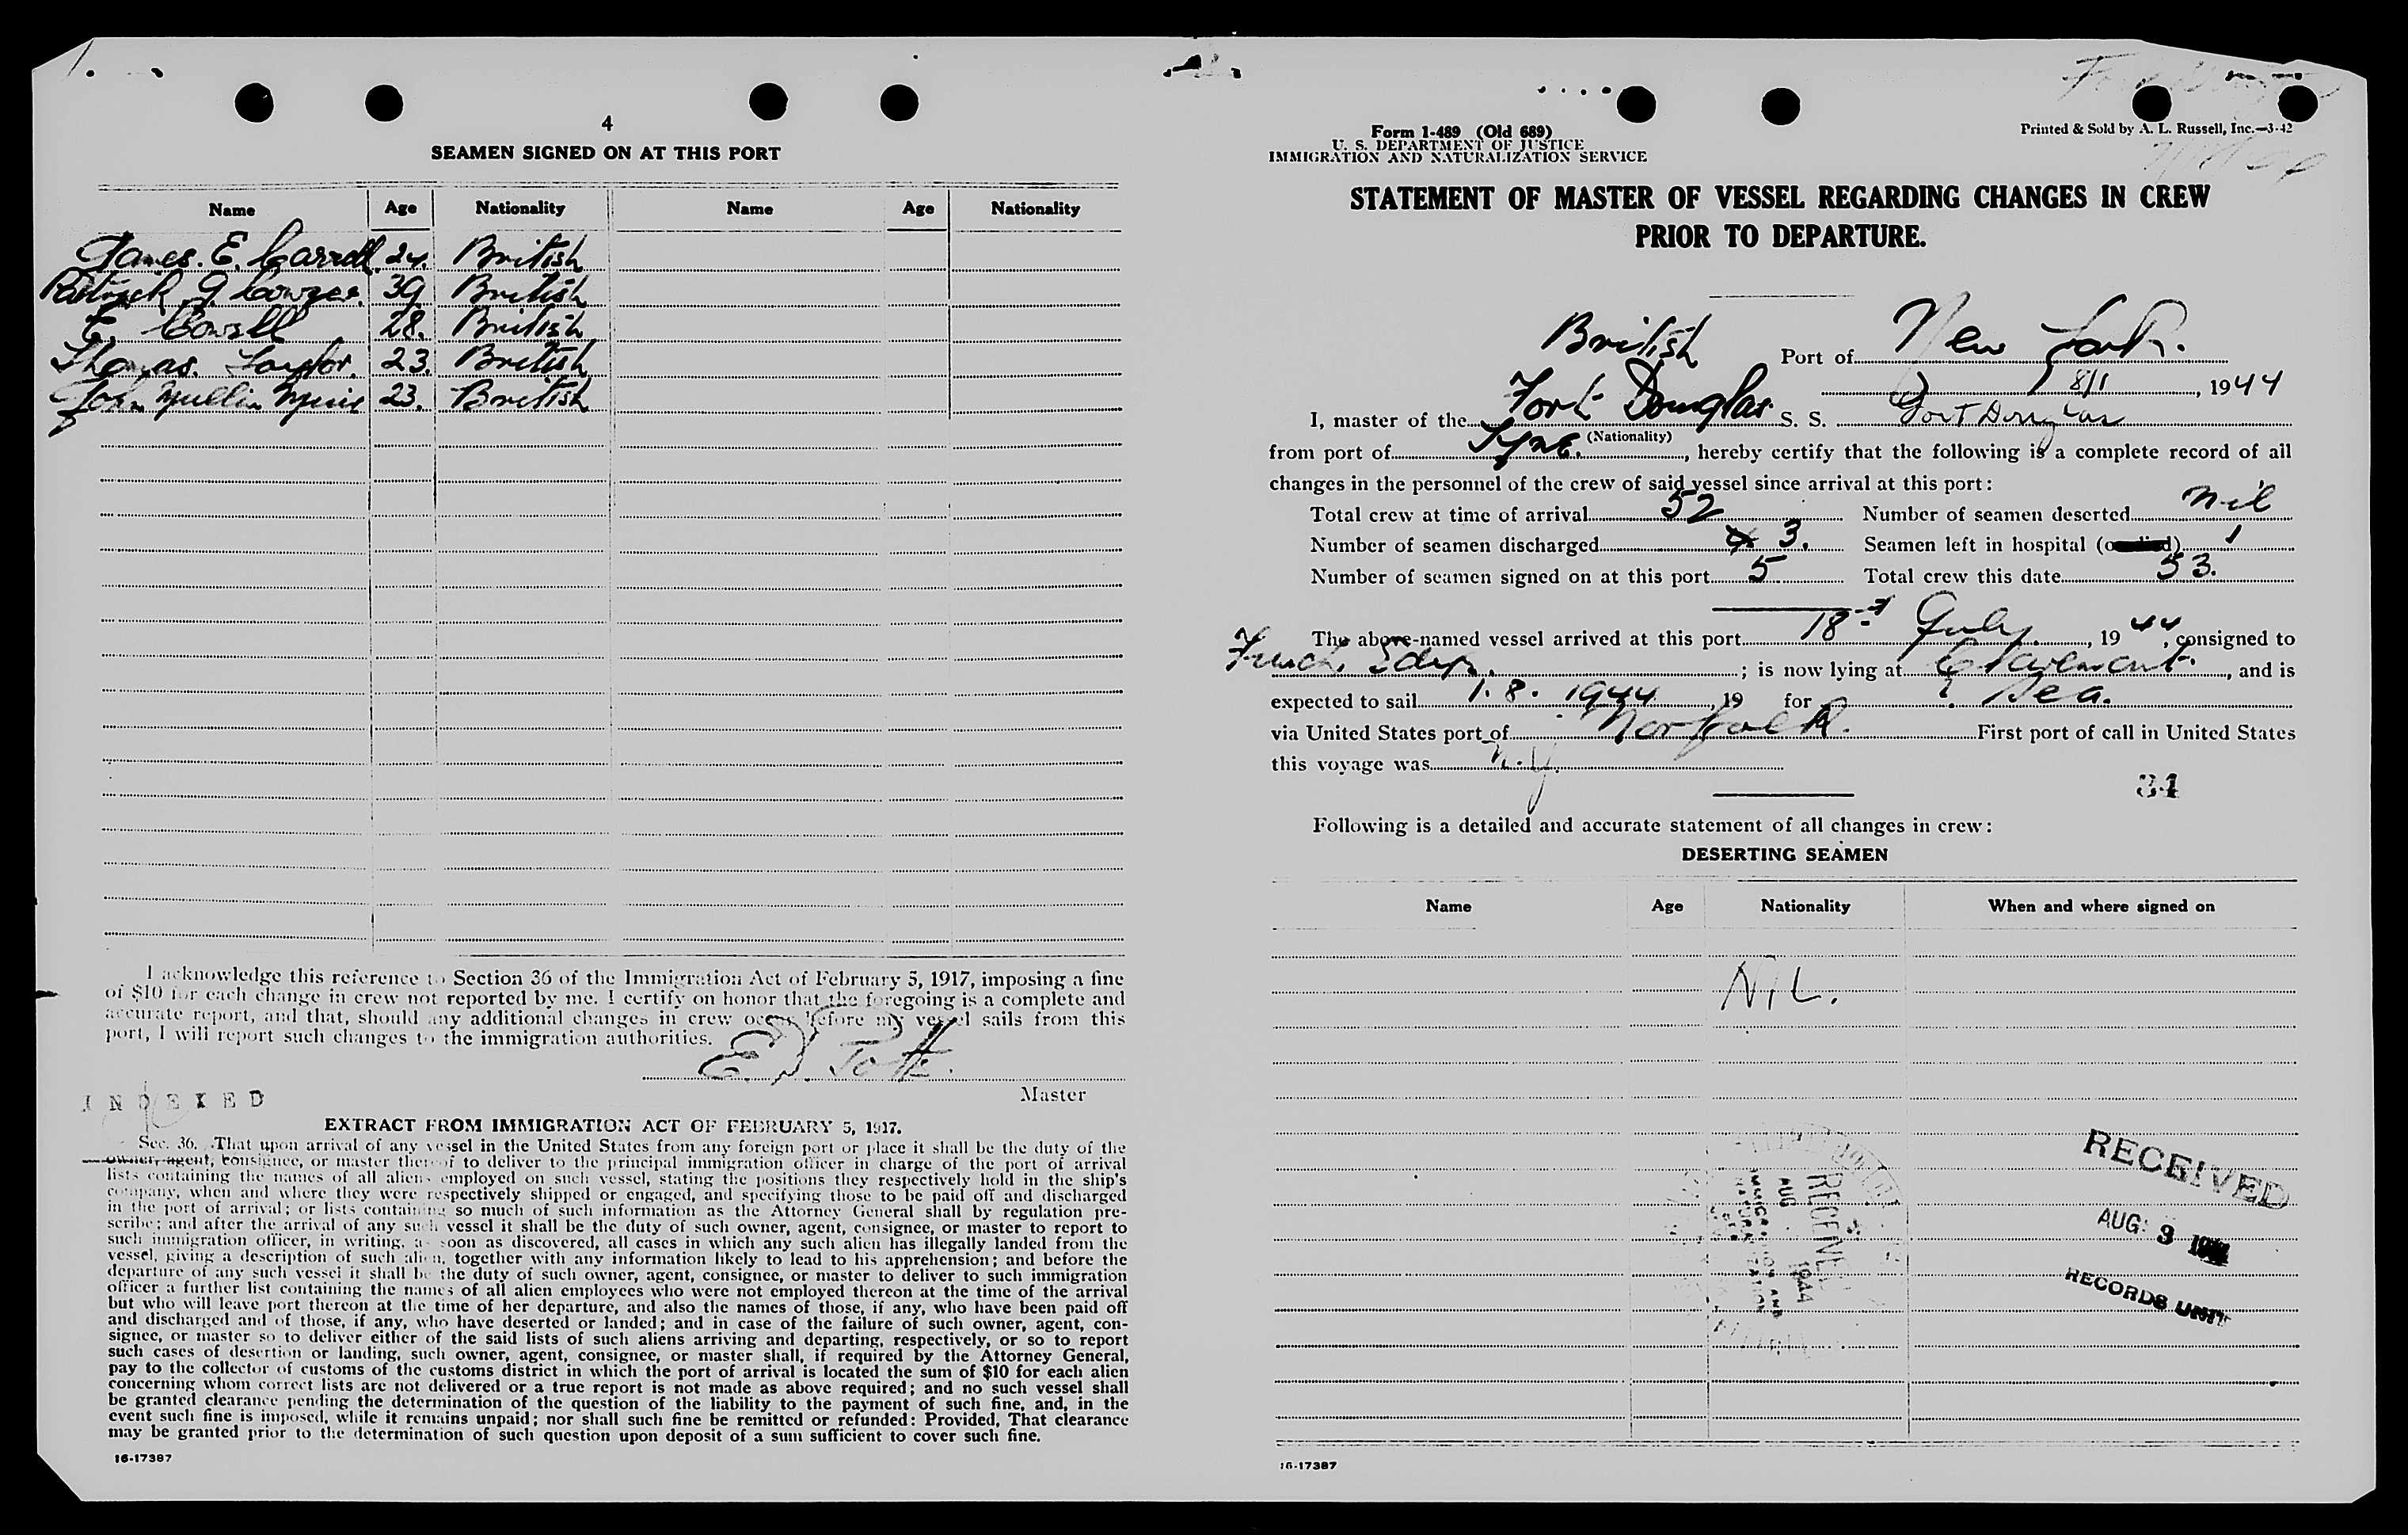 4
SEAMEN SIGNED ON AT THIS PORT
Name Age Nationality Name Age Nationality
James. E. Carroll. 24. British
Patrick G. 39 British
28. British
Thomas. Taylor. 23. British
John Mullin Muir 23. British
I acknowledge this reference to Section 36 of the Immigration Act of February 5, 1917, imposing a fine
of $10 for each change in crew not reported by me. I certify on honor that the foregoing is a complete and
accurate report, and that, should any additional changes in crew occur before my vessel sails from this
port, I will report such changes to the immigration authorities.
Master
INDEXED
EXTRACT FROM IMMIGRATION ACT OF FEBRUARY 5, 1917.
Sec. 36. That upon arrival of any vessel in the United States from any foreign port or place it shall be the duty of the
owner, agent, consignee, or master thereof to deliver to the principal immigration officer in charge of the port of arrival
lists containing the names of all aliens employed on such vessel, stating the positions they respectively hold in the ship's
company, when and where they were respectively shipped or engaged, and specifying those to be paid off and discharged
in the port of arrival; or lists containing so much of such information as the Attorney General shall by regulation pre-
scribe; and after the arrival of any such vessel it shall be the duty of such owner, agent, consignee, or master to report to
such immigration officer, in writing, as soon as discovered, all cases in which any such alien has illegally landed from the
vessel, giving a description of such alien, together with any information likely to lead to his apprehension; and before the
departure of any such vessel it shall be the duty of such owner, agent, consignee, or master to deliver to such immigration
officer a further list containing the names of all alien employees who were not employed thereon at the time of the arrival
but who will leave port thereon at the time of her departure, and also the names of those, if any, who have been paid off
and discharged and of those, if any, who have deserted or landed; and in case of the failure of such owner, agent, con-
signee, or master so to deliver either of the said lists of such aliens arriving and departing, respectively, or so to report
such cases of desertion or landing, such owner, agent, consignee, or master shall, if required by the Attorney General,
pay to the collector of customs of the customs district in which the port of arrival is located the sum of $10 for each alien
concerning whom correct lists are not delivered or a true report is not made as above required; and no such vessel shall
be granted clearance pending the determination of the question of the liability to the payment of such fine, and, in the
event such fine is imposed, while it remains unpaid; nor shall such fine be remitted or refunded: Provided, That clearance
may be granted prior to the determination of such question upon deposit of a sum sufficient to cover such fine.
16-17387
Form I-489 (Old 689)
U. S. DEPARTMENT OF JUSTICE
IMMIGRATION AND NATURALIZATION SERVICE
Printed & Sold by A. L. Russell, Inc.—3-42
STATEMENT OF MASTER OF VESSEL REGARDING CHANGES IN CREW
PRIOR TO DEPARTURE.
British Port of New York.
8/1, 1944
I, master of the Fort Douglas S. S. Fort Douglas
(Nationality)
from port of Tyne., hereby certify that the following is a complete record of all
changes in the personnel of the crew of said vessel since arrival at this port:
Total crew at time of arrival 52 Number of seamen deserted nil
Number of seamen discharged 3. Seamen left in hospital (or died) 1
Number of seamen signed on at this port 5 Total crew this date 53.
The above-named vessel arrived at this port 18th July, 1944, consigned to
French ; is now lying at Claremont., and is
expected to sail 1. 8. 1944 19 for Sea.
via United States port of Norfolk. First port of call in United States
this voyage was N.Y.
34
Following is a detailed and accurate statement of all changes in crew:
DESERTING SEAMEN
Name Age Nationality When and where signed on
NIL.
RECEIVED
AUG 1944
IMMIGRATION AND
NATURALIZATION
RECEIVED
AUG 3
RECORDS UNIT
16-17387